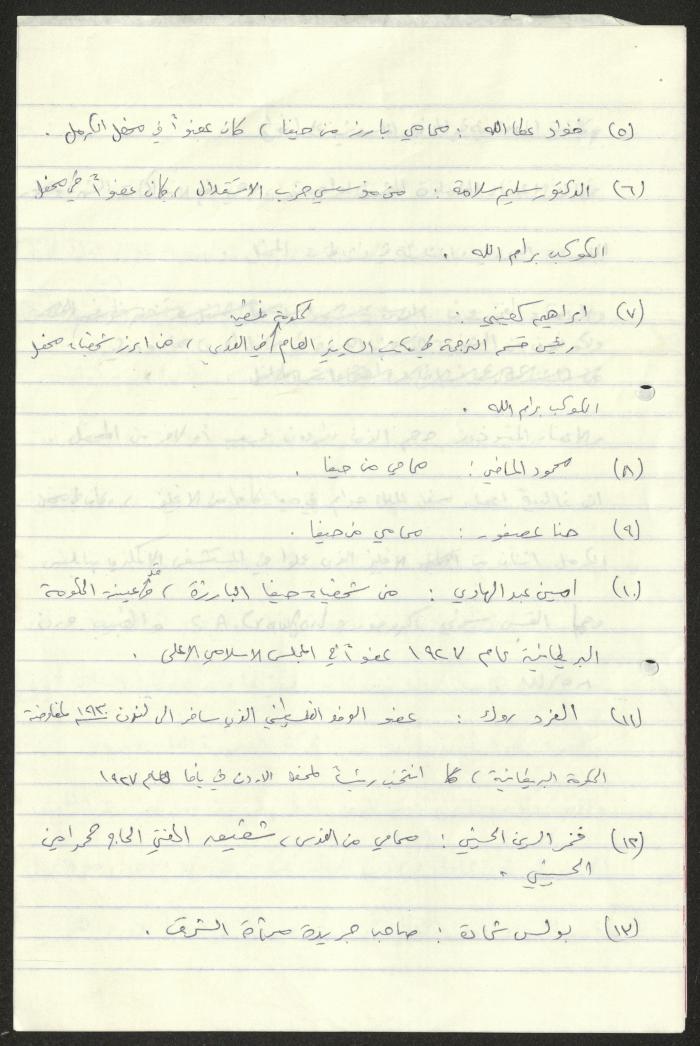 (٥) فؤاد عطا الله : محامي بارز من حيفا ، كان عضواً في محفل الكرمل .
(٦) الدكتور سليم سلامة : من مؤسسي حزب الاستقلال ، كان عضواً في محفل
الكوكب برام الله .
(٧) ابراهيم كعيبني :
لحكومة فلسطين
رئيس قسم الترجمة في مكتب السكرتير العام في القدس ، من ابرز شخصيات محفل
الكوكب برام الله .
(٨) محمود الماضي : محامي من حيفا .
(٩) حنا عصفور : محامي من حيفا .
(١٠) امين عبد الهادي : من شخصيات حيفا البارزة ، وقد عينته الحكومة
البريطانية عام ١٩٢٧ عضواً في المجلس الاسلامي الاعلى .
(١١) الفرد روك : عضو الوفد الفلسطيني الذي سافر الى لندن سنة ١٩٣٠ لمفاوضة
الحكومة البريطانية ، كما انتخب رئيساً لمحفل الاردن في يافا عام ١٩٢٧
(١٢) فخر الدين الحسيني : محامي من القدس ، شقيق المفتي الحاج محمد امين
الحسيني .
(١٣) بولس شحادة : صاحب جريدة مرآة الشرق .